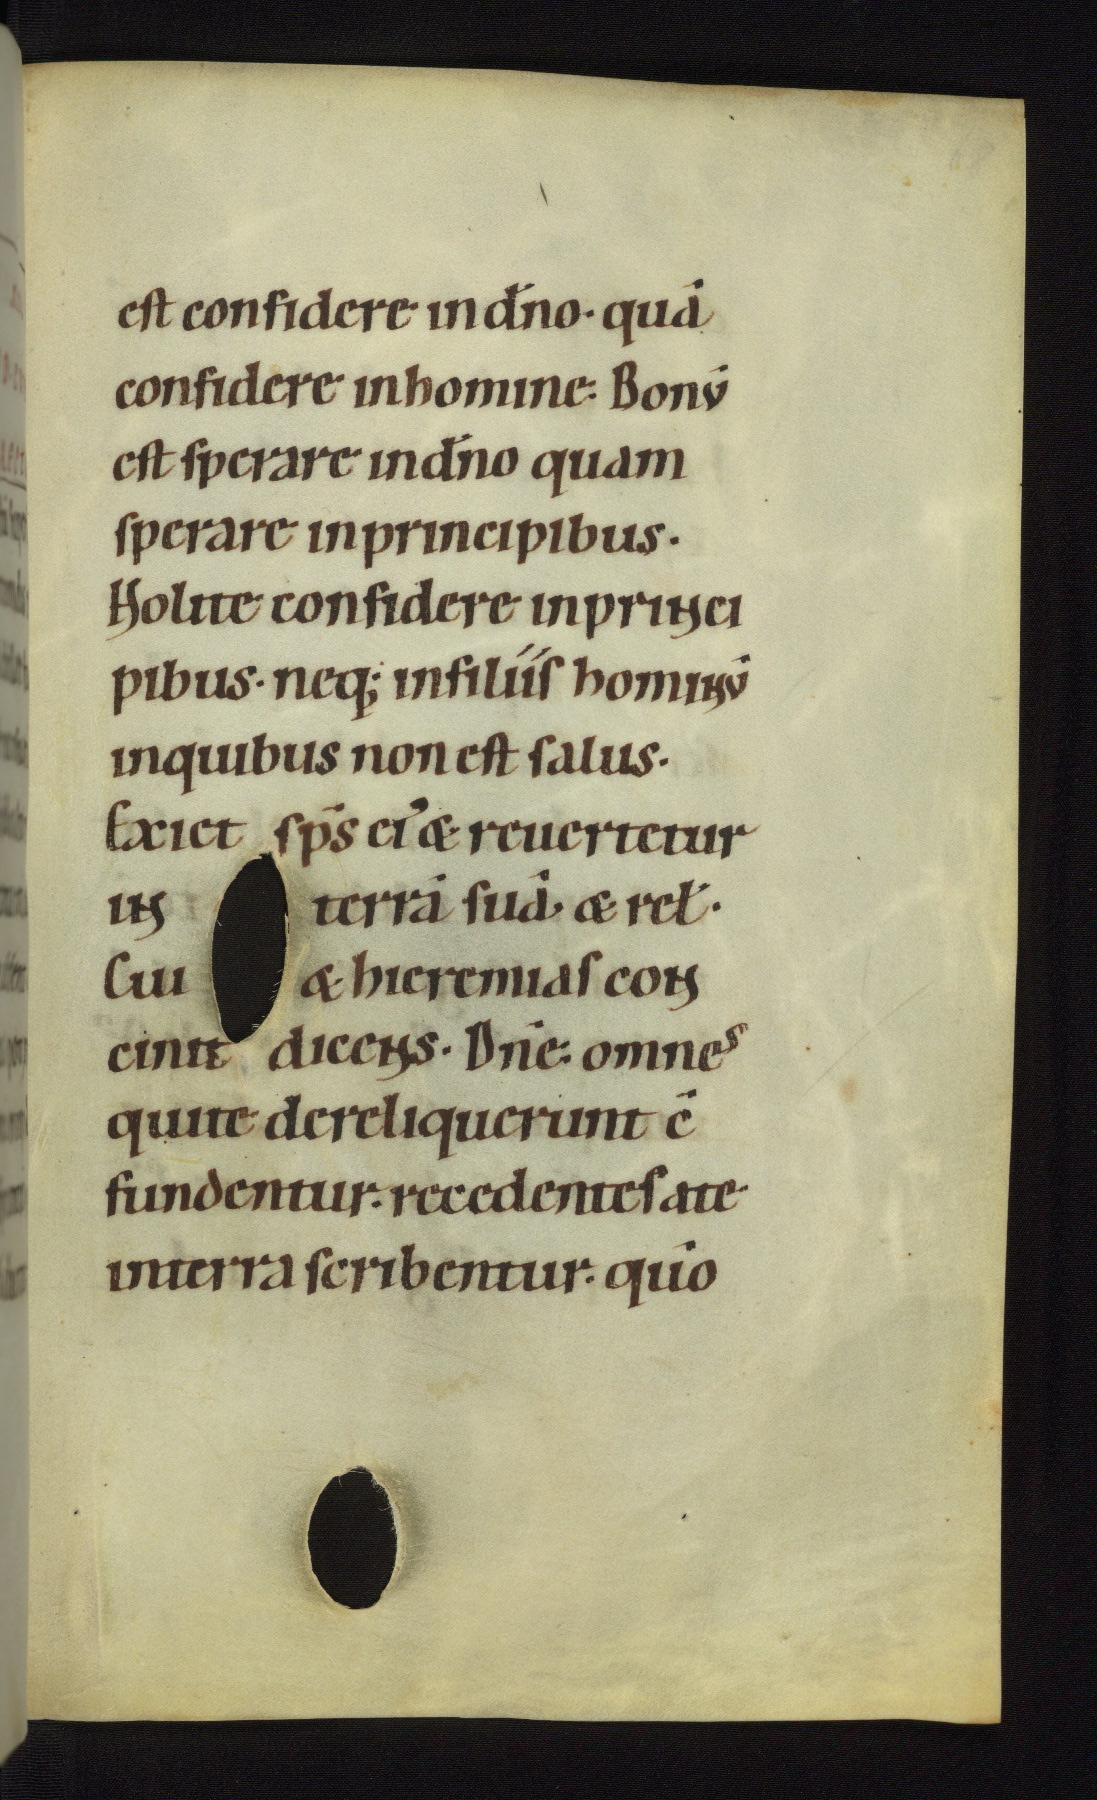 est confidere in dn̄o· quā
confidere in homine· Bonū
est sperare in dn̄o quam
sperare in principibus·
Nolite confidere in princi
pibus· neq; in filiis hominū
in quibus non est salus·
Exiet sp̄s ei᾿ & reuertetur
in terrā suā· & rel̄·
Cui & hieremias con
cinit dicens· Dn̄e· omnes
qui te dereliquerunt c̄
fundentur· recedentes a te
in terra scribentur· quō